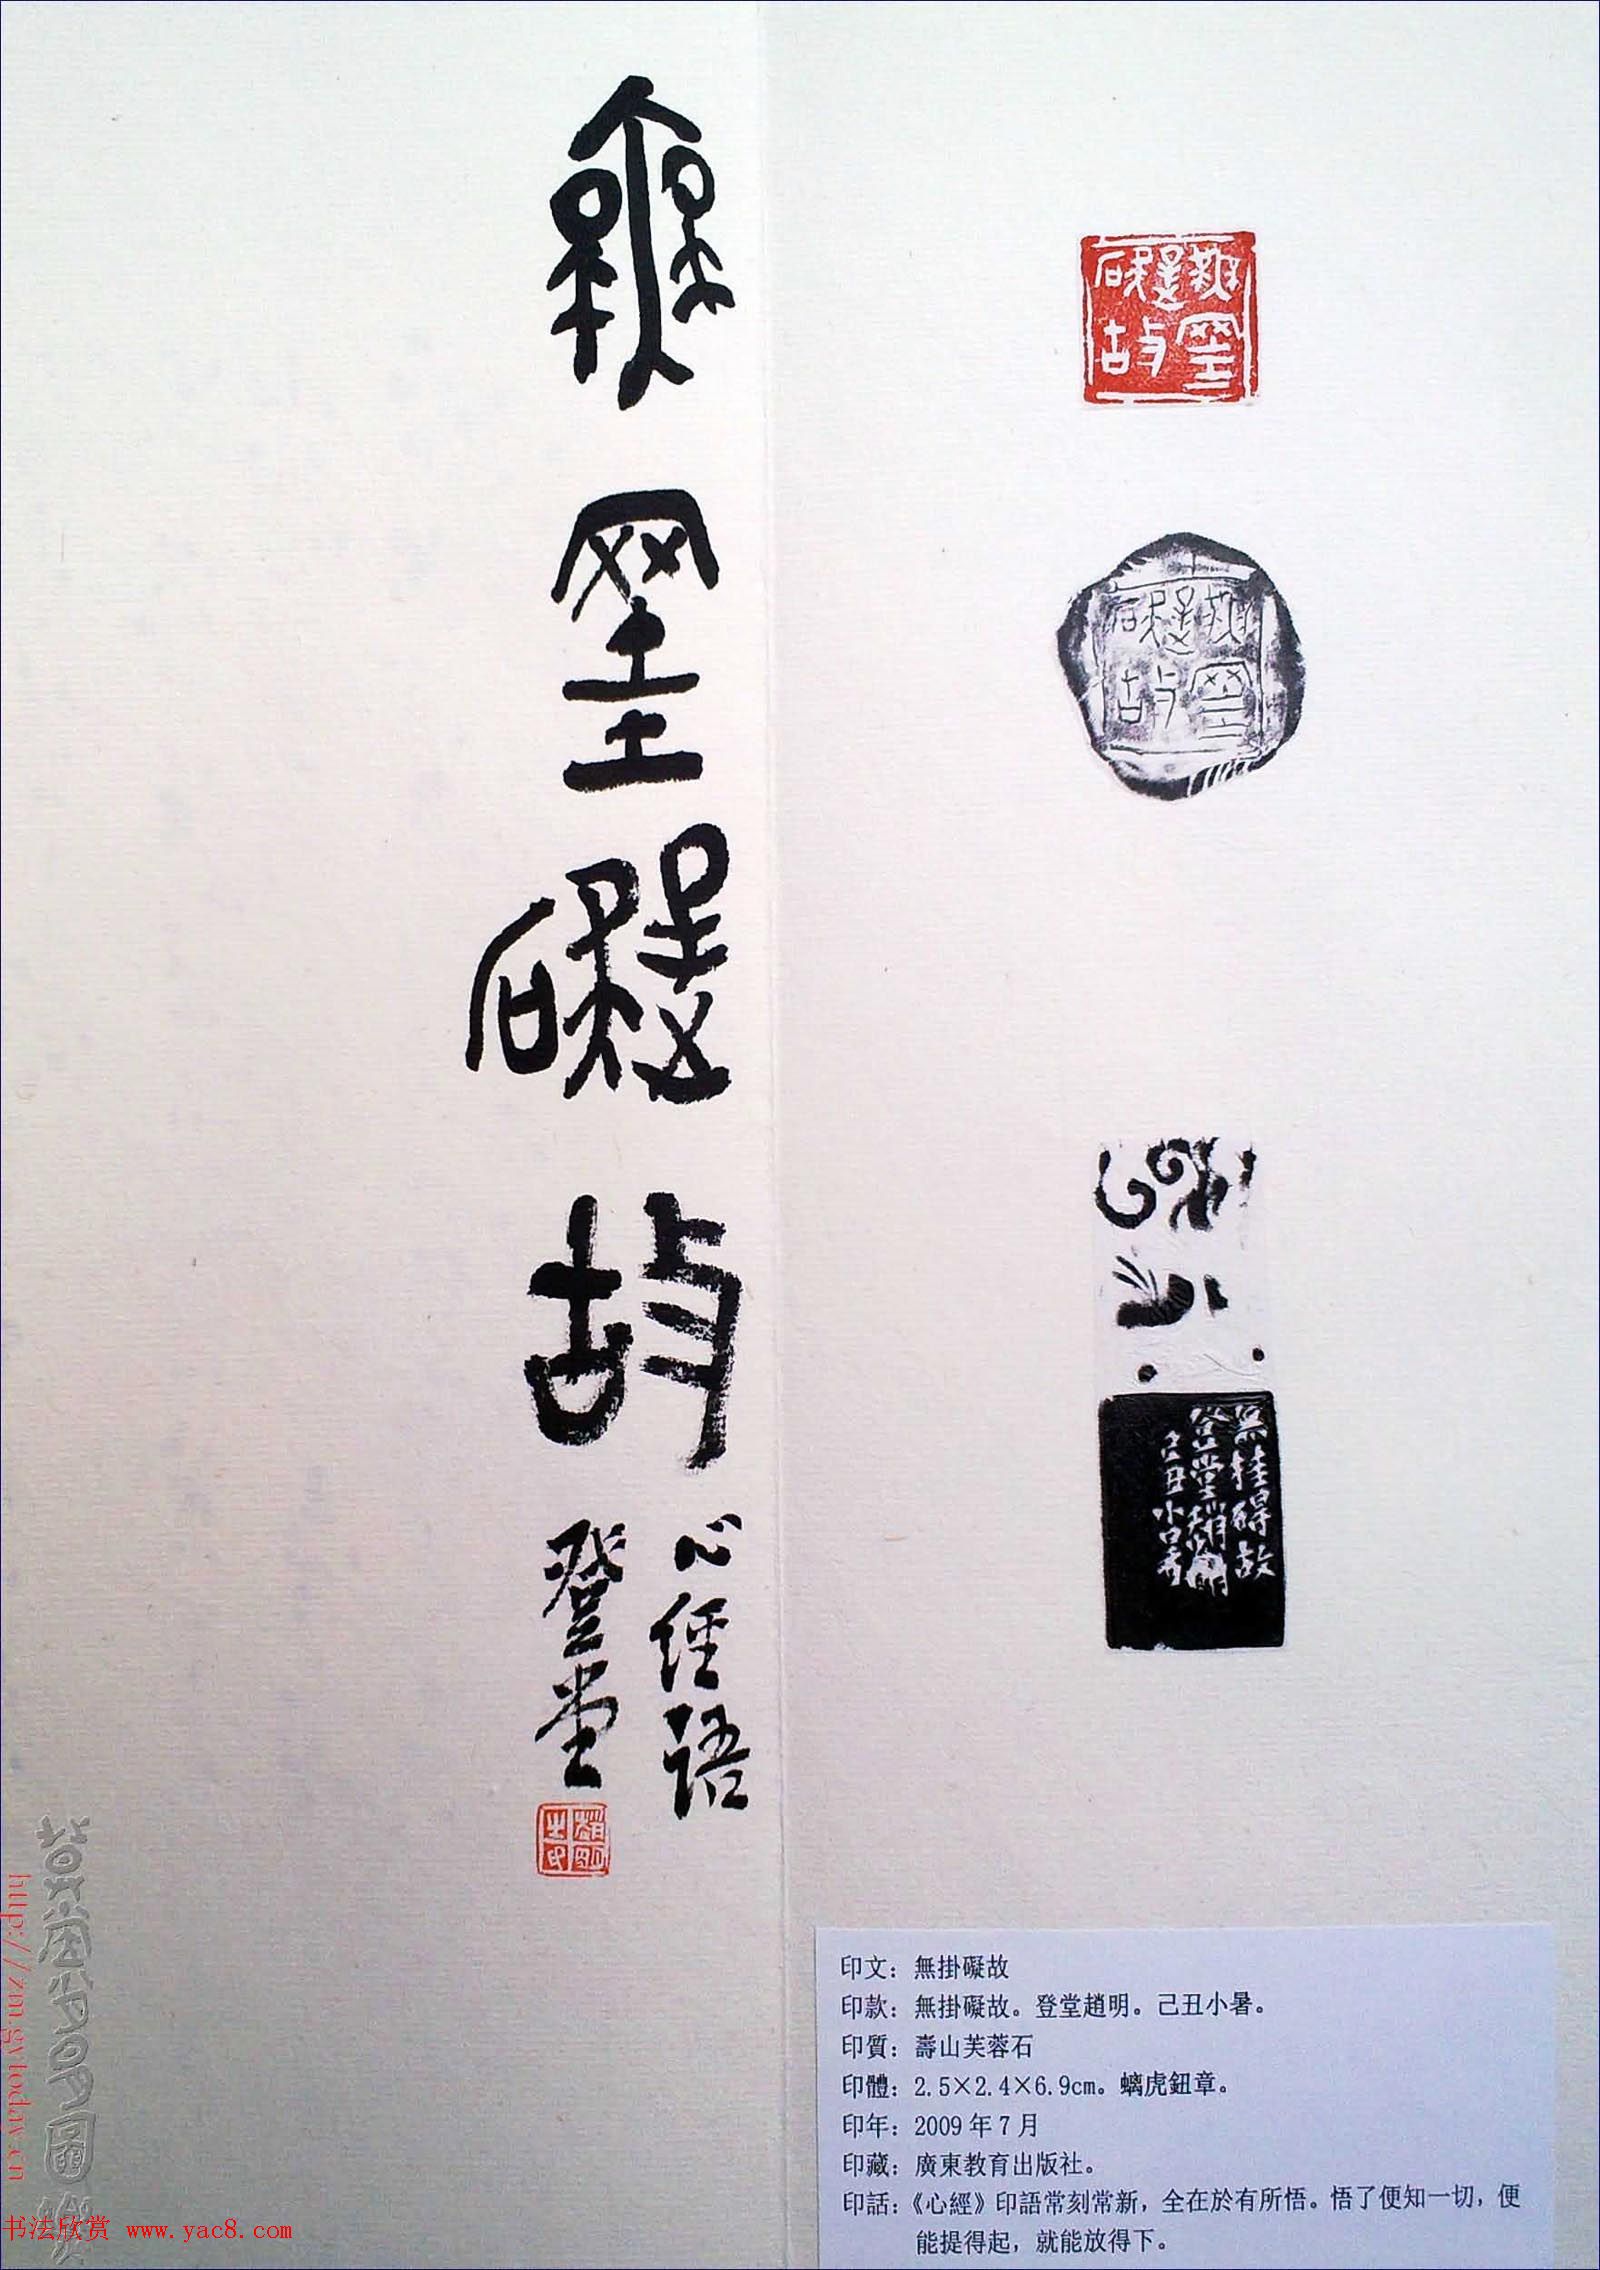 無掛礙故
心經語
登堂
趙明之印
無掛礙故
無掛礙故
無挂碍故
登堂趙明
己丑小暑
印文：無掛礙故
印款：無掛礙故。登堂趙明。己丑小暑。
印質：壽山芙蓉石
印體：2.5×2.4×6.9cm。螭虎鈕章。
印年：2009年7月
印藏：廣東教育出版社。
印話：《心經》印語常刻常新，全在於有所悟。悟了便知一切，便
能提得起，就能放得下。
http://zmgytoday.cn
书法欣赏 www.yac8.com